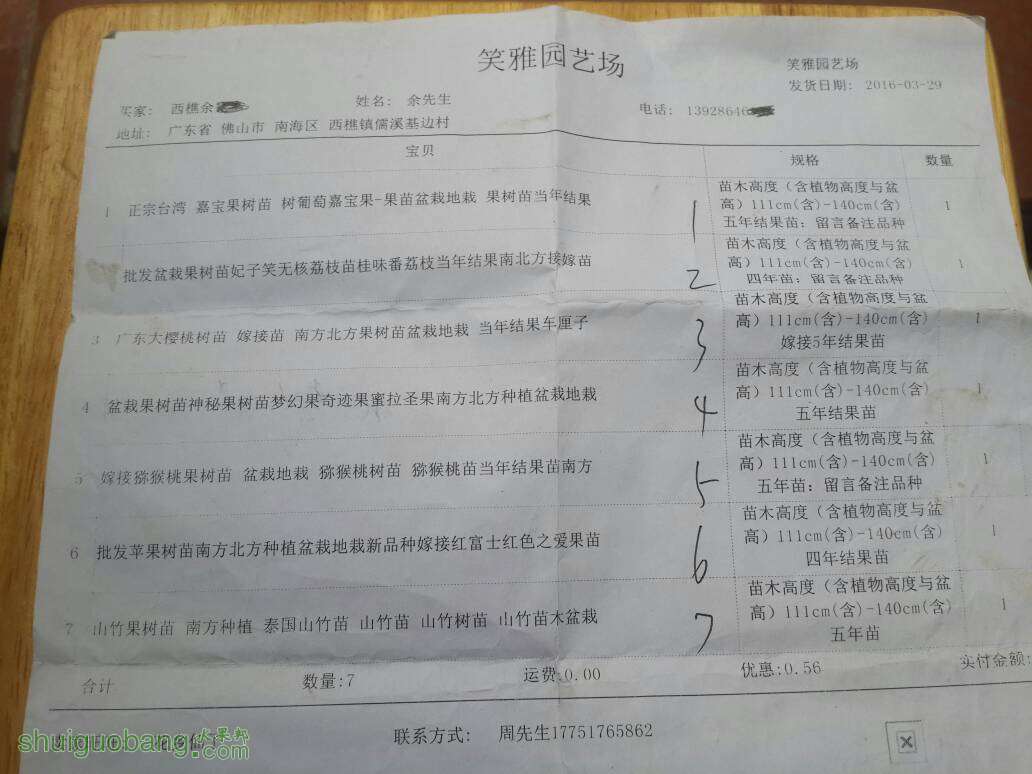 笑雅园艺场
笑雅园艺场
发货日期: 2016-03-29
买家: 西樵余
姓名: 余先生
电话: 13928646
地址: 广东省 佛山市 南海区 西樵镇儒溪基边村
宝贝 规格 数量
1 正宗台湾 嘉宝果树苗 树葡萄嘉宝果-果苗盆栽地栽 果树苗当年结果 1
苗木高度（含植物高度与盆
高）111cm(含)-140cm(含)
五年结果苗: 留言备注品种
1
批发盆栽果树苗妃子笑无核荔枝苗桂味番荔枝当年结果南北方接嫁苗 2
苗木高度（含植物高度与盆
高）111cm(含)-140cm(含)
四年苗: 留言备注品种
1
3 广东大樱桃树苗 嫁接苗 南方北方果树苗盆栽地栽 当年结果车厘子 3
苗木高度（含植物高度与盆
高）111cm(含)-140cm(含)
嫁接5年结果苗
1
4 盆栽果树苗神秘果树苗梦幻果奇迹果蜜拉圣果南方北方种植盆栽地栽 4
苗木高度（含植物高度与盆
高）111cm(含)-140cm(含)
五年结果苗
1
5 嫁接猕猴桃果树苗 盆栽地栽 猕猴桃树苗 猕猴桃苗当年结果苗南方 5
苗木高度（含植物高度与盆
高）111cm(含)-140cm(含)
五年苗: 留言备注品种
1
6 批发苹果树苗南方北方种植盆栽地栽新品种嫁接红富士红色之爱果苗 6
苗木高度（含植物高度与盆
高）111cm(含)-140cm(含)
四年结果苗
1
7 山竹果树苗 南方种植 泰国山竹苗 山竹苗 山竹树苗 山竹苗木盆栽 7
苗木高度（含植物高度与盆
高）111cm(含)-140cm(含)
五年苗
1
合计 数量:7 运费:0.00 优惠:0.56 实付金额:
联系方式: 周先生17751765862
shuiguobang.com
水果邦